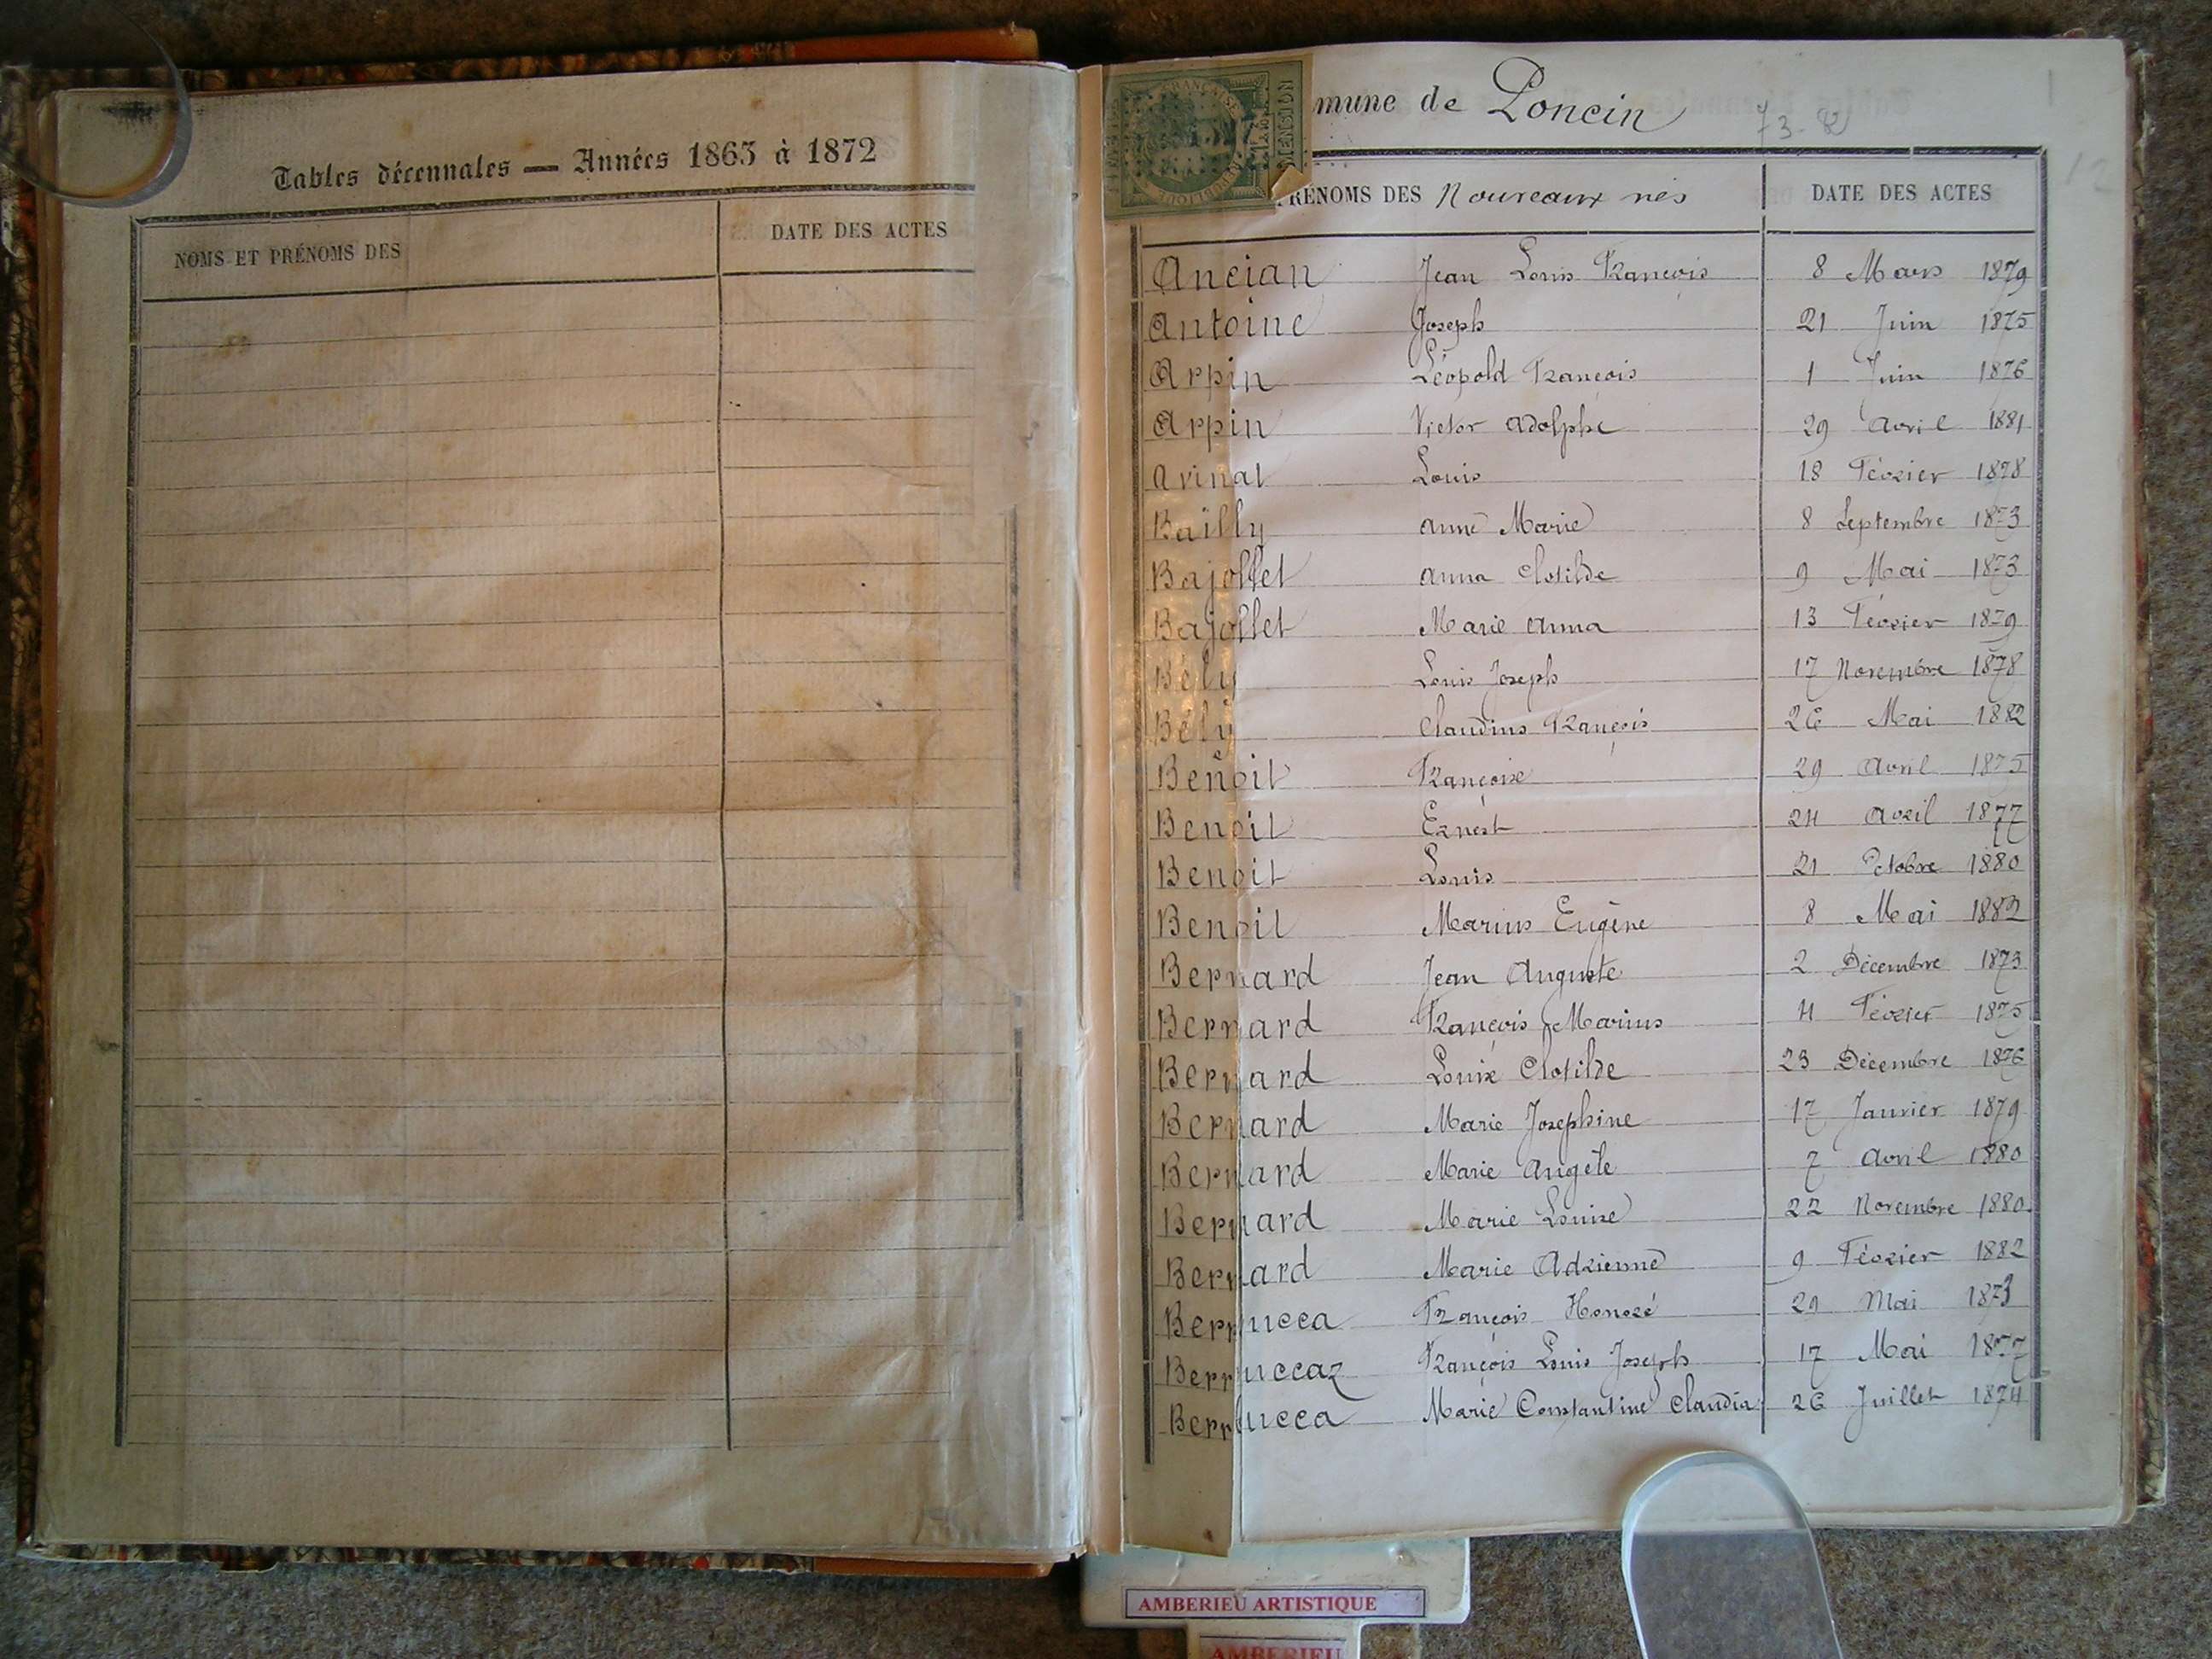 Tables décennales — Années 1863 à 1872
NOMS ET PRÉNOMS DES
DATE DES ACTES
mune de Poncin
73-82
RÉNOMS DES Nouveaux nés DATE DES ACTES
Ancian Jean Louis François 8 Mars 1879
Antoine Joseph 21 Juin 1875
Arpin Léopold François 1 Juin 1876
Arpin Victor Adolphe 29 Avril 1881
Avinat Louis 18 Février 1878
Bailly Anne Marie 8 Septembre 1873
Bajollet Anna Clotilde 9 Mai 1873
Bajollet Marie Anna 13 Février 1879
Bély Louis Joseph 17 Novembre 1878
Bély Claudius François 26 Mai 1882
Benoit Françoise 29 Avril 1875
Benoit Ernest 24 Avril 1877
Benoit Louis 21 Octobre 1880
Benoit Marius Eugène 8 Mai 1882
Bernard Jean Auguste 2 Décembre 1873
Bernard François Marius 4 Février 1875
Bernard Louise Clotilde 23 Décembre 1876
Bernard Marie Josephine 17 Janvier 1879
Bernard Marie Angèle 7 Avril 1880
Bernard Marie Louise 22 Novembre 1880
Bernard Marie Adrienne 9 Février 1882
Berrucca François Honoré 29 Mai 1873
Berruccaz François Louis Joseph 17 Mai 1877
Berrucca Marie Constantine Claudia 26 Juillet 1874
AMBERIEU ARTISTIQUE
AMBERIEU